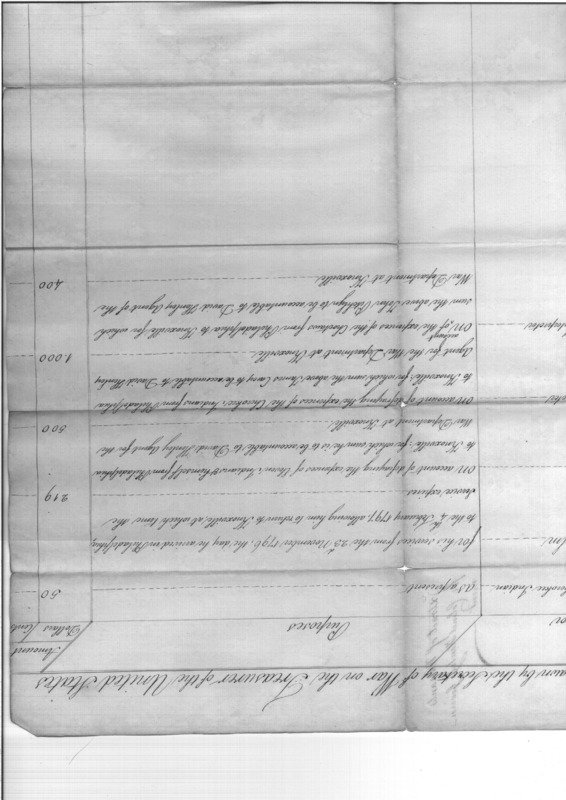 awn by the Secretary of War on the Treasurer of the United States
or
Purposes
Amount
Dollars Cents
okee Indian
as a present
50
for his services from the 23d November 1796, the day he arrived in Philadelphia,
to the 4th February 1797, allowing him to return to Knoxville, at which time the
service expires
219
On account of defraying the expences of Indians & himself from Philadelphia
to Knoxville, for which sum he is to be accountable to David Henley Agent for the
War Department at Knoxville
500
On account of defraying the expences of the Cherokee Indians from Philadelphia
to Knoxville, for which sum the above James Carey to be accountable to David Henley
Agent for the War Department at Knoxville
1.000
On account of the expences of the Choctaws from Philadelphia to Knoxville for which
sum the above John to be accountable to David Henley Agent of the
War Department at Knoxville
400